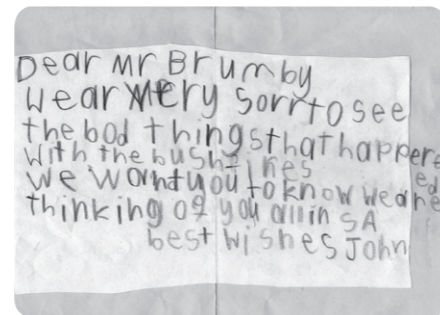 Dear Mr Brumby
We are very sorr to see
the bad things that happened
with the bushfires
we want you to know we are
thinking of you all in SA
best wishes John